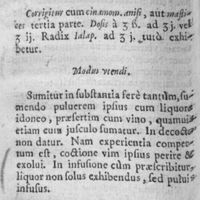 Corrigitur cum cinamom. anisi, aut mastic
cer tertia parte. Dosis à ʒ ß. ad ʒ j. vel
ʒ ij. Radix Ialap. ad ʒ j. tutò exhi-
betur.
Modus vtendi.
Sumitur in substantia ferè tantùm, su-
mendo puluerem ipsius cum liquore
idoneo, præsertim cum vino, quamuis
etiam cum iusculo sumatur. In decocto
non datur. Nam experientia compertum
tum est, coctione vim ipsius perire &
exolui. In infusione cùm præscribitur
liquor non solus exhibendus, sed puluis
infusus.